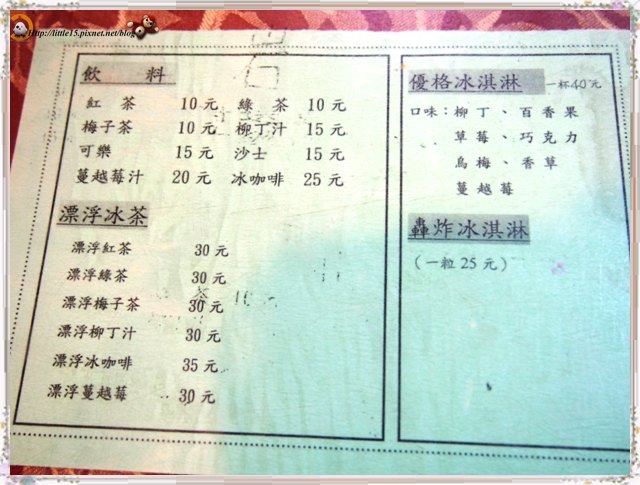 http://little15.pixnet.net/blog
飲 料
紅 茶 10 元 綠 茶 10 元
梅子茶 10 元 柳丁汁 15 元
可樂 15 元 沙士 15 元
蔓越莓汁 20 元 冰咖啡 25 元
漂浮冰茶
漂浮紅茶 30 元
漂浮綠茶 30 元
漂浮梅子茶 30 元
漂浮柳丁汁 30 元
漂浮冰咖啡 35 元
漂浮蔓越莓 30 元
優格冰淇淋 一杯40元
口味：柳丁、百香果
草莓、巧克力
烏梅、香草
蔓越莓
轟炸冰淇淋
（一粒 25 元）